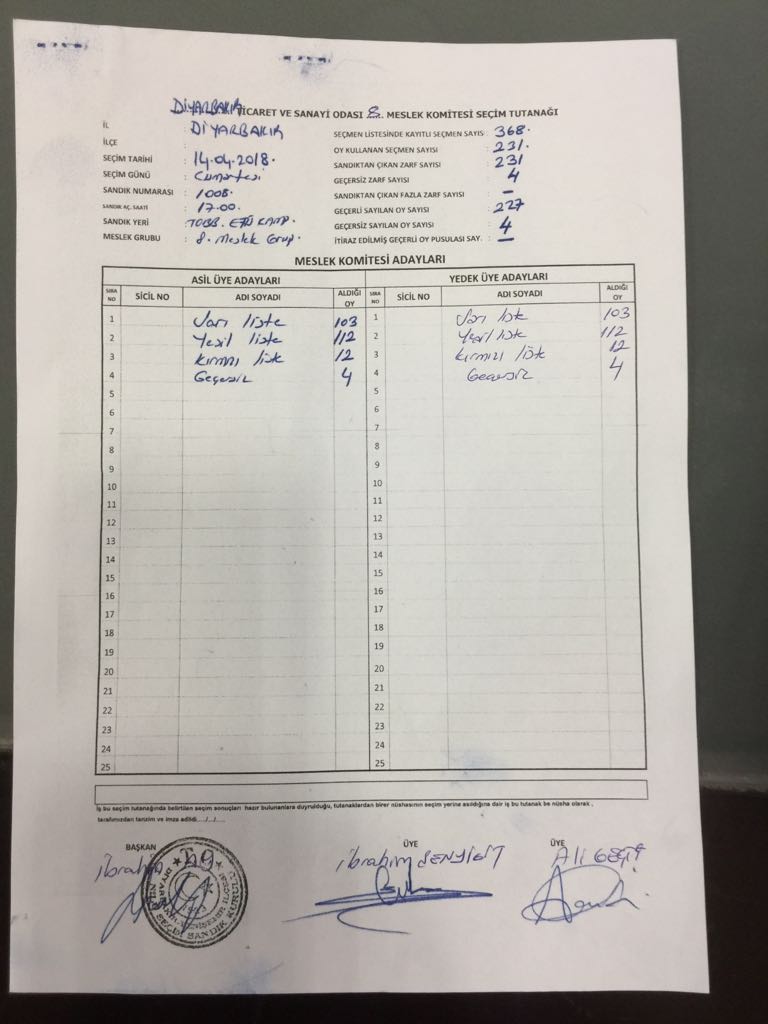 DİYARBAKIR TİCARET VE SANAYİ ODASI 8. MESLEK KOMİTESİ SEÇİM TUTANAĞI
İL : DİYARBAKIR
İLÇE :
SEÇİM TARİHİ : 14.04.2018.
SEÇİM GÜNÜ : Cumartesi
SANDIK NUMARASI : 1008.
SANDIK AÇ. SAATİ : 17.00.
SANDIK YERİ : TOBB. KAMP.
MESLEK GRUBU : 8. Meslek Grup.
SEÇMEN LİSTESİNDE KAYITLI SEÇMEN SAYIS : 368.
OY KULLANAN SEÇMEN SAYISI : 231.
SANDIKTAN ÇIKAN ZARF SAYISI : 231
GEÇERSİZ ZARF SAYISI : 4
SANDIKTAN ÇIKAN FAZLA ZARF SAYISI : –
GEÇERLİ SAYILAN OY SAYISI : 227
GEÇERSİZ SAYILAN OY SAYISI : 4
İTİRAZ EDİLMİŞ GEÇERLİ OY PUSULASI SAY. : –
MESLEK KOMİTESİ ADAYLARI
ASİL ÜYE ADAYLARI
SIRA NO SİCİL NO ADI SOYADI ALDIĞI OY
1 Sarı liste 103
2 Yeşil liste 112
3 Kırmızı liste 12
4 Geçersiz 4
5
6
7
8
9
10
11
12
13
14
15
16
17
18
19
20
21
22
23
24
25
YEDEK ÜYE ADAYLARI
SIRA NO SİCİL NO ADI SOYADI ALDIĞI OY
1 Sarı liste 103
2 Yeşil liste 112
3 Kırmızı liste 12
4 Geçersiz 4
5
6
7
8
9
10
11
12
13
14
15
16
17
18
19
20
21
22
23
24
25
İş bu seçim tutanağında belirtilen seçim sonuçları hazır bulunanlara duyrulduğu, tutanaklardan birer nüshasının seçim yerine asıldığına dair iş bu tutanak be nüsha olarak ,
tarafımızdan tanzim ve imza adildi. / /
BAŞKAN
İbrahim
ÜYE
İbrahim ŞENYİĞİT
ÜYE
Ali